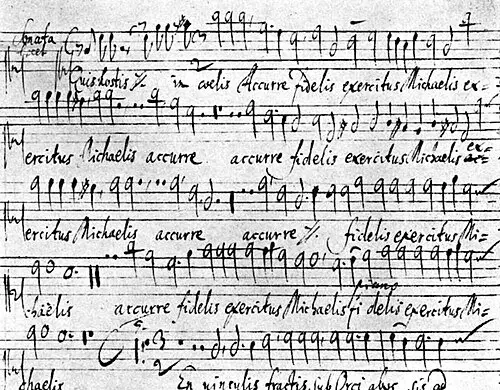 Sonata
licet
Quis hostis in coelis Accurre fidelis exercitus Michaelis ex-
ercitus Michaelis accurre accurre fidelis exercitus Michaelis ex-
ercitus Michaelis accurre accurre fidelis exercitus Mi-
piano
chaëlis accurre fidelis exercitus Michaelis fidelis exercitus Mi-
chaelis En vinculis fractis sub Orci